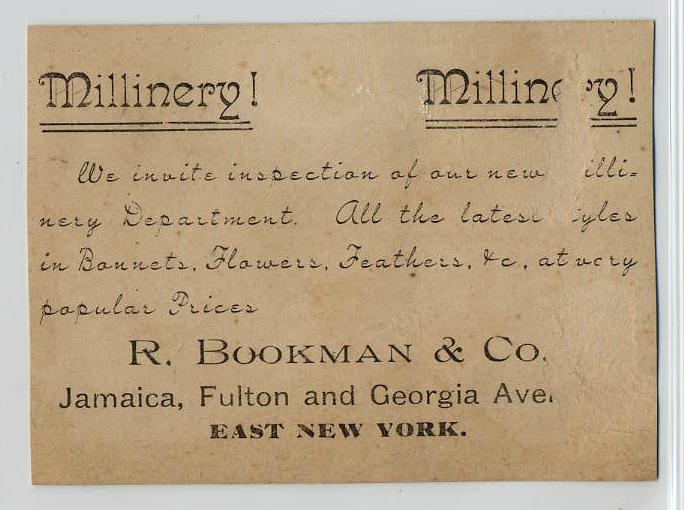 Millinery! Millinery!
We invite inspection of our new illi-
nery Department. All the latest yles
in Bonnets, Flowers, Feathers, &c, at very
popular Prices
R. BOOKMAN & Co.
Jamaica, Fulton and Georgia Ave
EAST NEW YORK.